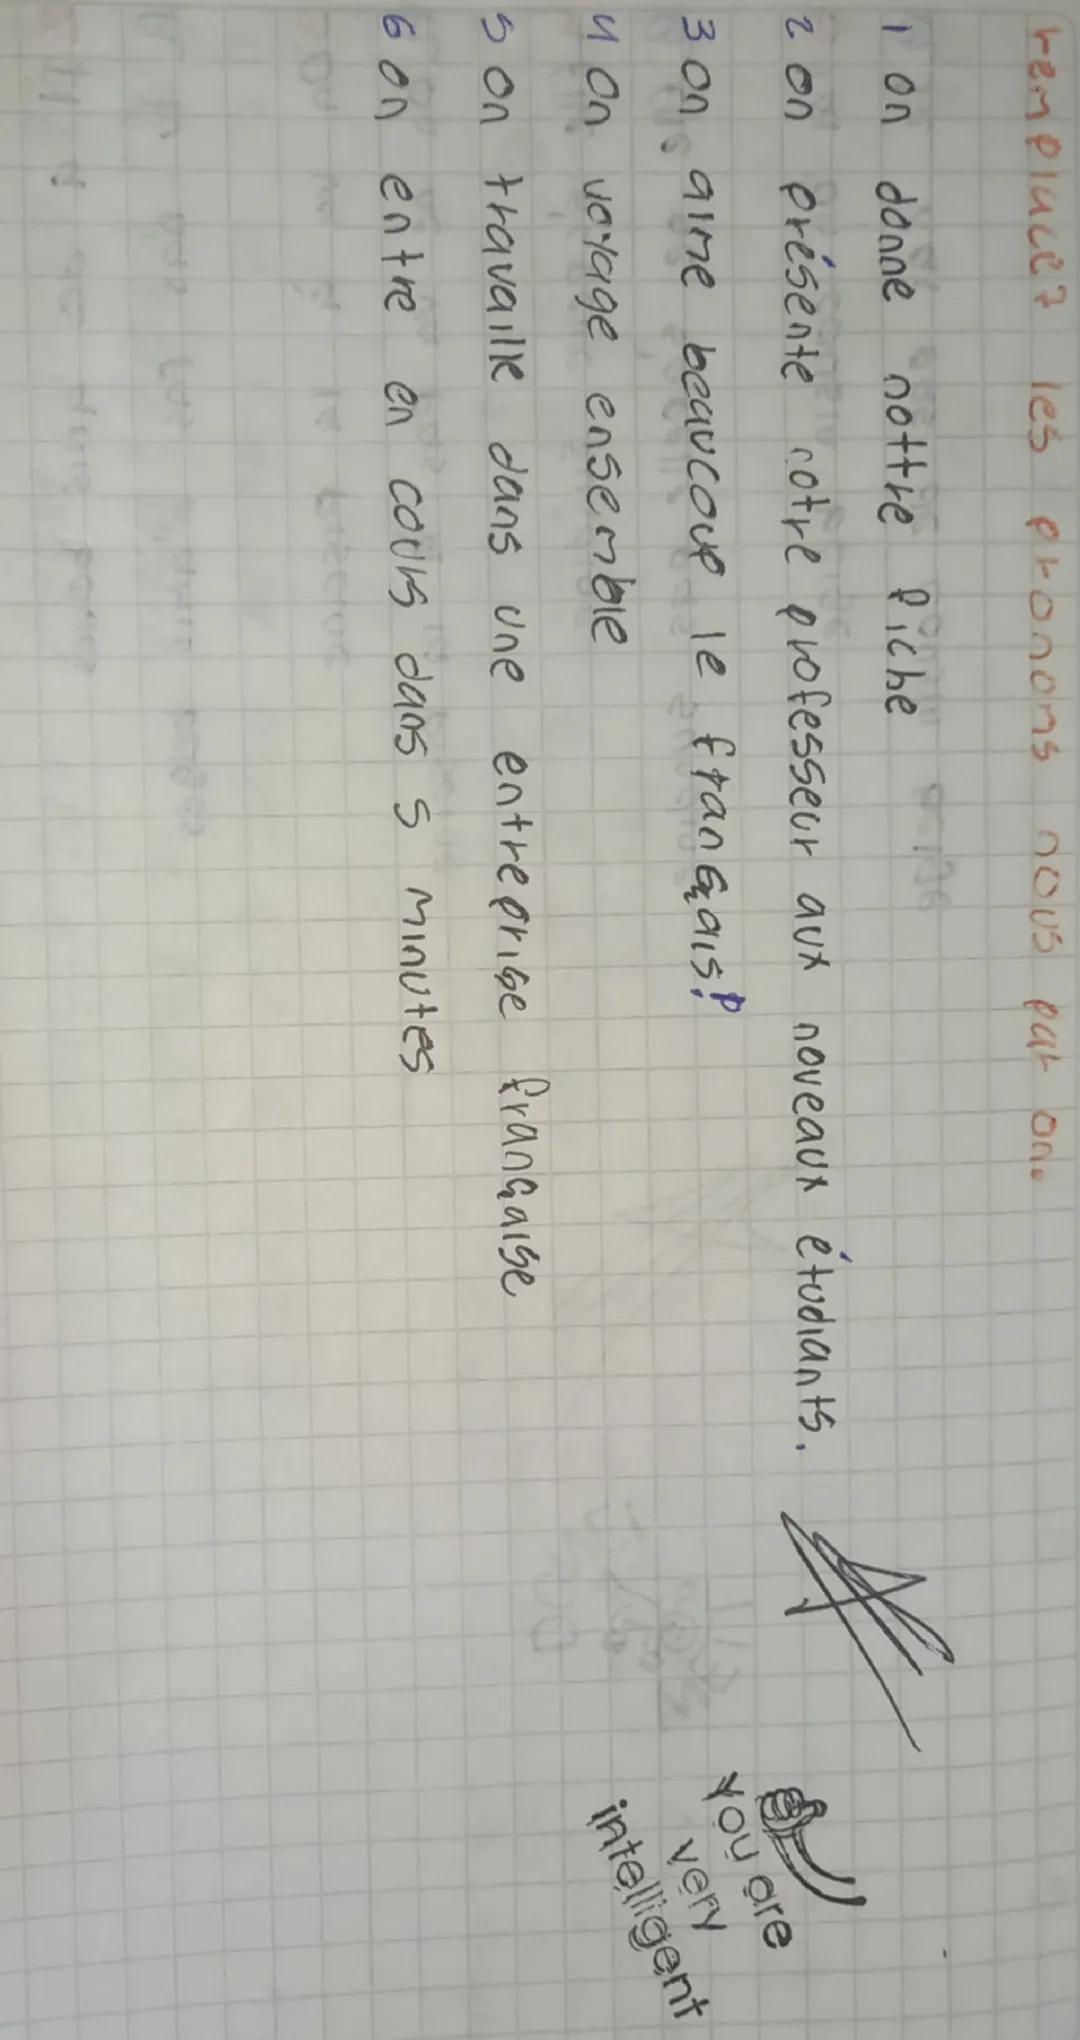 remplacez les pronoms nous par on.
1 on donne nottre fiche
2 on présente notre professeur aux noveaux étudiants.
3 on aime beaucoup le français!
4 on voyage ensemble
5 on travaille dans une entreprise française
6 on entre en cours dans 5 minutes
you are
very
intelligent